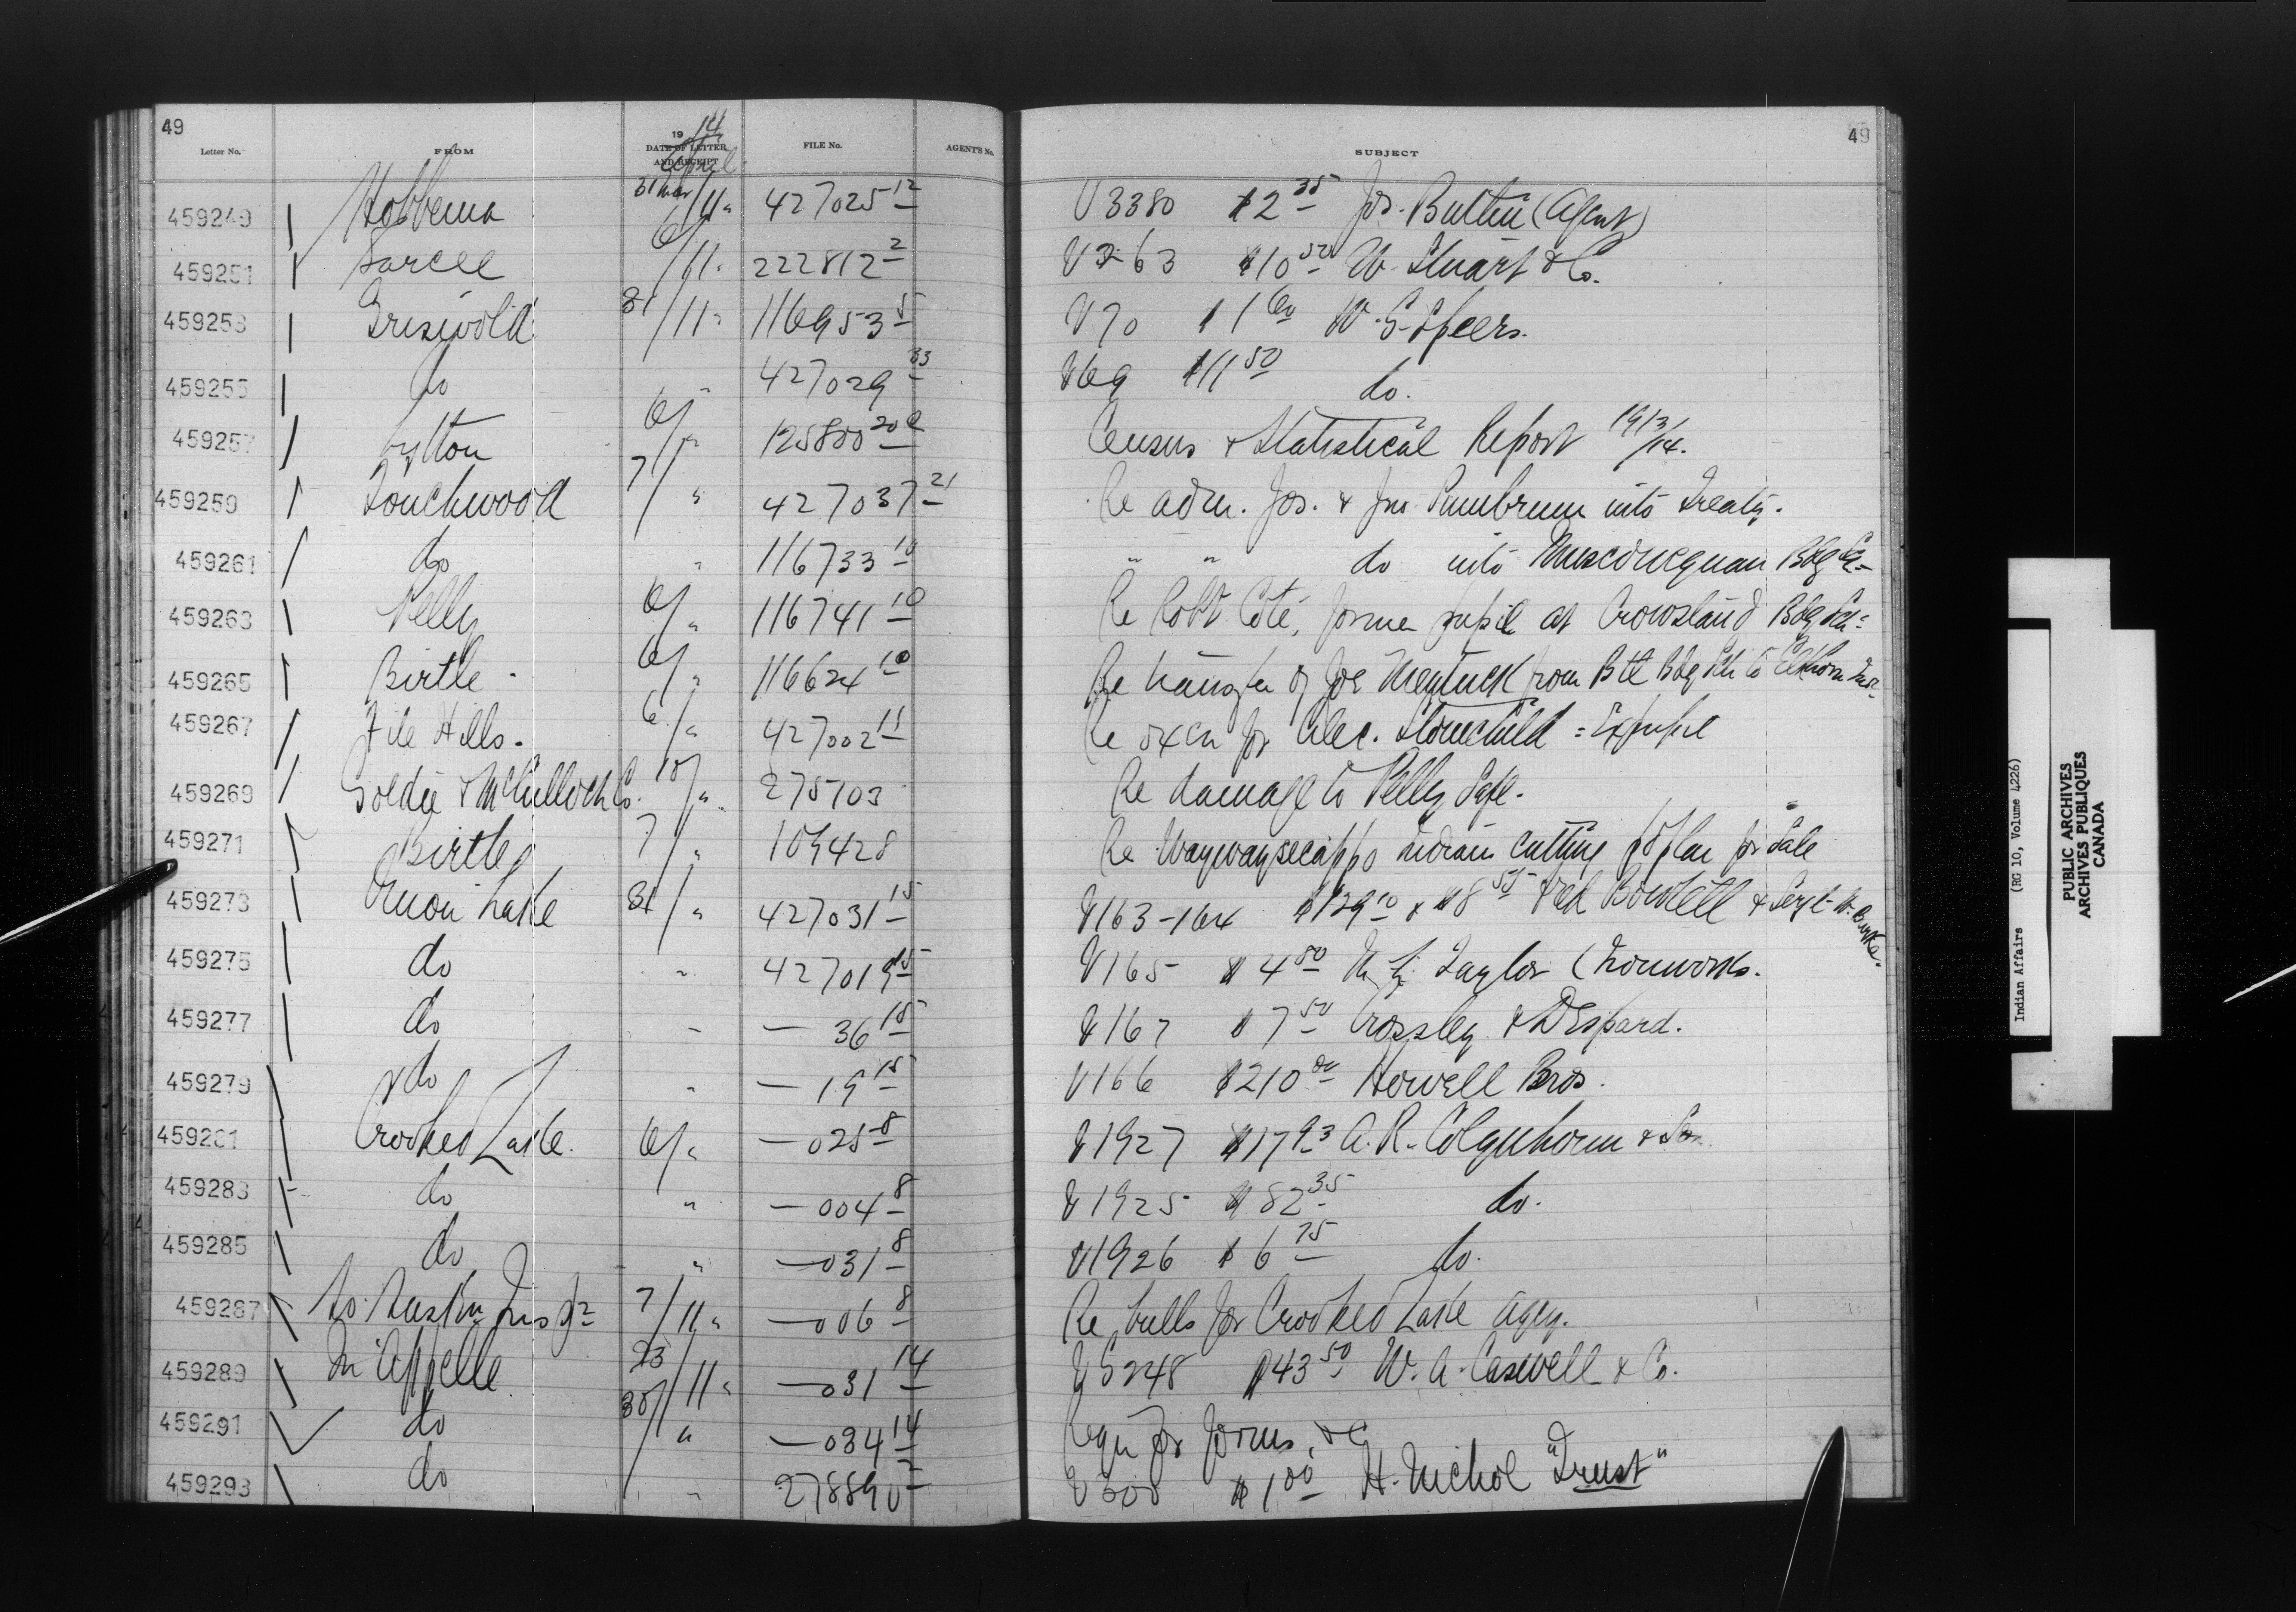 49 49
Letter No. FROM 19 14 DATE OF LETTER AND RECEIPT FILE No. AGENT'S No. SUBJECT
April
459249 Hobbema 31 Mar/11 " 427025 12 V 3380 $2 35 Jos. Butlin (Agent)
459251 Sarcee 6/11 " 222812 2 V 263 $10 50 W. Stuart & Co.
459253 Griswold 31/11 " 116953 5 V 70 $1 60 W. S. Speers.
459255 do " 427029 33 V 69 $11 50 do.
459257 Lytton 6/" 125800 20 Census & Statistical Report 1913/14.
459259 Touchwood 7/" 427037 21 Re adm. Jos. & Jno. into Treaty.
459261 do " 116733 10 " " do into Muscowequan Bdg Sch
459263 Pelly 6/" 116741 10 Re Robt Coté, former pupil at Crowstand Bdg Sch
459265 Birtle 6/" 116624 10 Re transfer of Joe from Btl Bdg Sch to Elkhorn
459267 File Hills. 6/" 427002 11 Re oxen for Alec. Stonechild = Expupil
459269 Goldie & McCulloch Co. 10/" 275703 Re damage to Pelly Safe.
459271 Birtle 7/" 109428 Re Waywaysecappo Indians cutting poplar for Sale
459273 Onion Lake 31/" 427031 15 V163-164 $129 10 & $8 55 & Sergt W. Burke.
459275 do " 427019 15 V165 $4 80 Taylor (Ironworks.
459277 do " — 36 15 V167 $7 50 Crossley & Despard.
459279 do " — 19 15 V166 $210 00 Howell Bros.
459281 Crooked Lake. 6/" — 025 8 V1927 $17 93 A. R. Colquhoun & Son
459283 do " — 004 8 V1925 $82 35 do.
459285 do " — 031 8 V1926 $6 75 do.
459287 So. Sask'n Insp. 7/11 " — 006 8 Re bulls for Crooked Lake Agcy.
459289 Qu'Appelle 23/11 " — 031 14 V 5248 $43 50 W. A. Caswell & Co.
459291 do 30/" — 034 14 Requ for forms, &c
459293 do " 278890 2 V 300 $1 00 H. Nichol "Trust"
Indian Affairs (RG 10, Volume 4226)
PUBLIC ARCHIVES
ARCHIVES PUBLIQUES
CANADA